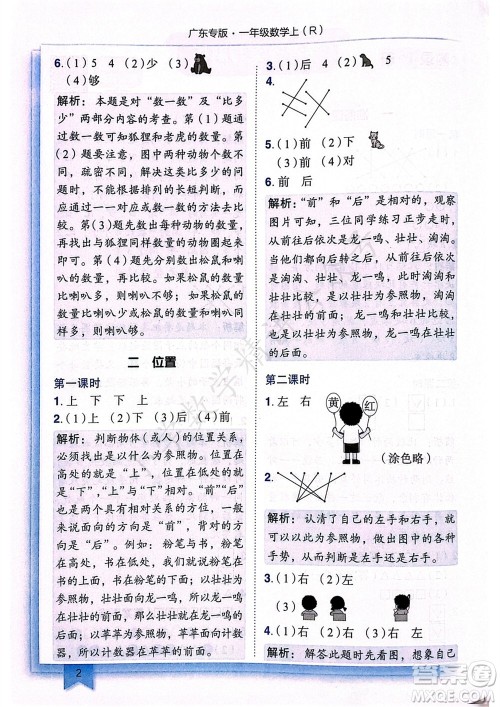 广东专版·一年级数学上(R)
6.(1)5 4 (2)少 (3)
(4)够
解析:本题是对“数一数”及“比多
少”两部分内容的考查。第(1)题
通过数一数可知狐狸和老虎的数量。
第(2)题要注意,图中对动物个
数进行比较时,不要单纯根据每种
动物排列的长短判断,而应该根据
每种动物的数量的多少进行比较。
第(3)题先数出每种动物的数量,
再比较,可以发现和小狐狸同样多
的动物是小熊,故将表示小熊数量
的动物圈起来。第(4)题先分别数
出松鼠和喇叭的数量,再比较。若
喇叭的数量比松鼠的数量多,则喇
叭够;若喇叭的数量和松鼠的数量
同样多,则喇叭够。
二 位置
第一课时
1.上 下 下 上
2.(1)上 下 (2)上 (3)后 (4)前
解析:判断物体(或人)的位置关系,
必须找出是以什么为参照物。位置
在高处的就是“上”,在低处的就是
“下”,“上”与“下”相对。“前”“后”
也是相对的两个方向,面对的方向
是“前”,背对的方向是“后”。例
如:粉笔与书,粉笔在高处,书在
低处,书在粉笔的下面。龙一鸣与
壮壮,壮壮面向龙一鸣的后面,所
以壮壮在龙一鸣的后面。草莓与苹
果,是以苹苹为参照物的,草莓在
上,所以计数器在苹苹的前面。
2
3.(1)后 4 (2) 5
4.
5.(1)前 (2)下
(3)前 (4)对
6.前 后
解析:“前”和“后”是相对的,观察
图片可知,三位同学练习正步走时,
从前往后依次是龙一鸣、壮壮、淘淘。
当他们向后转后,从前往后依次是
淘淘、壮壮、龙一鸣。所以正步走
时,以壮壮为参照物,龙一鸣在壮
壮的前面;当他们向后转后,还是
以壮壮为参照物,龙一鸣在壮壮
的后面。
第二课时
1.左 右 黄 红
(涂色略)
2.
解析:认清了自己的左手和右手,就
可以以此为参照,根据图中的各种
手势,从而判断是左手还是右手。
3.(1)右 (2)左
(3)右 (4)左
解析:解答此题时先看图,想象自己